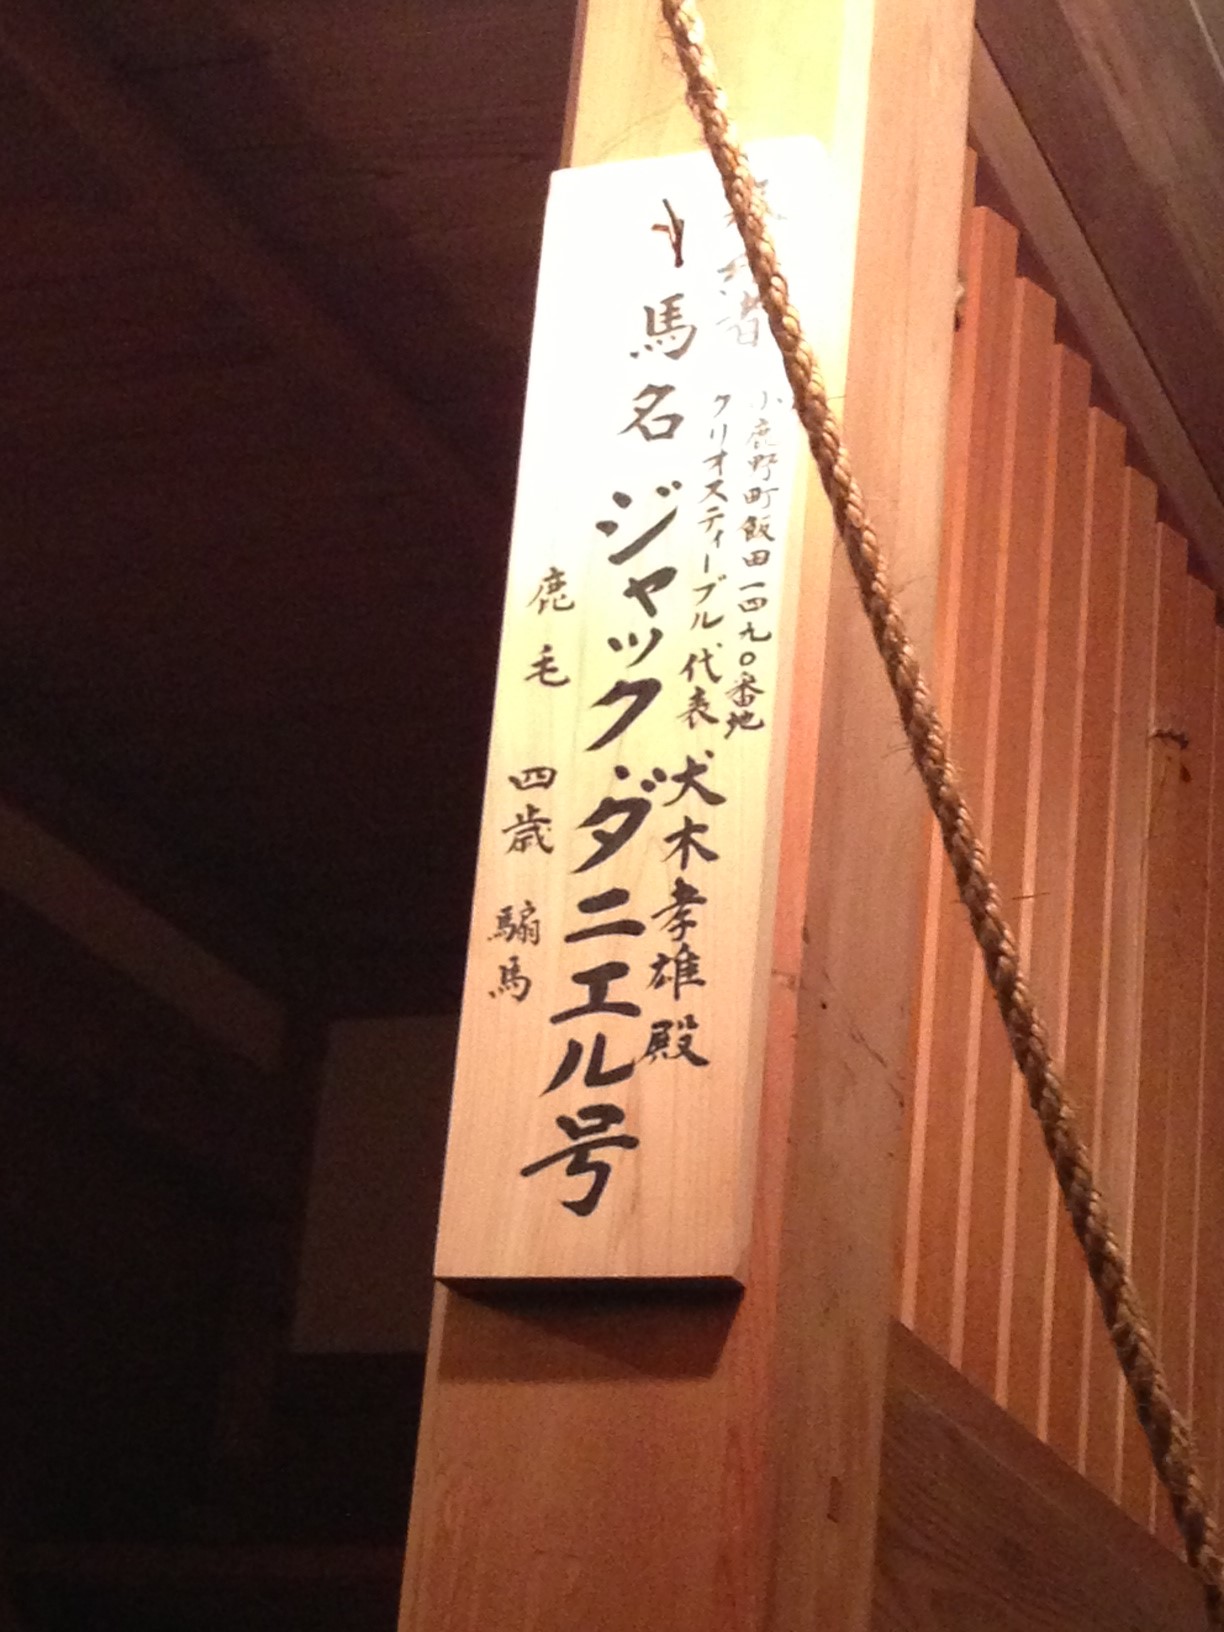 者
小鹿野町飯田一四九〇番地
クリオスティーブル 代表 犬木孝雄殿
馬名 ジャック・ダニエル号
鹿毛 四歳 騸馬